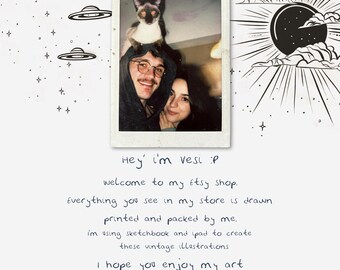 Hey' i'm Vesi :P
welcome to my Etsy shop.
Everything you see in my store is drawn
printed and packed by me.
i'm using sketchbook and ipad to create
these vintage illustrations
I hope you enjoy my art